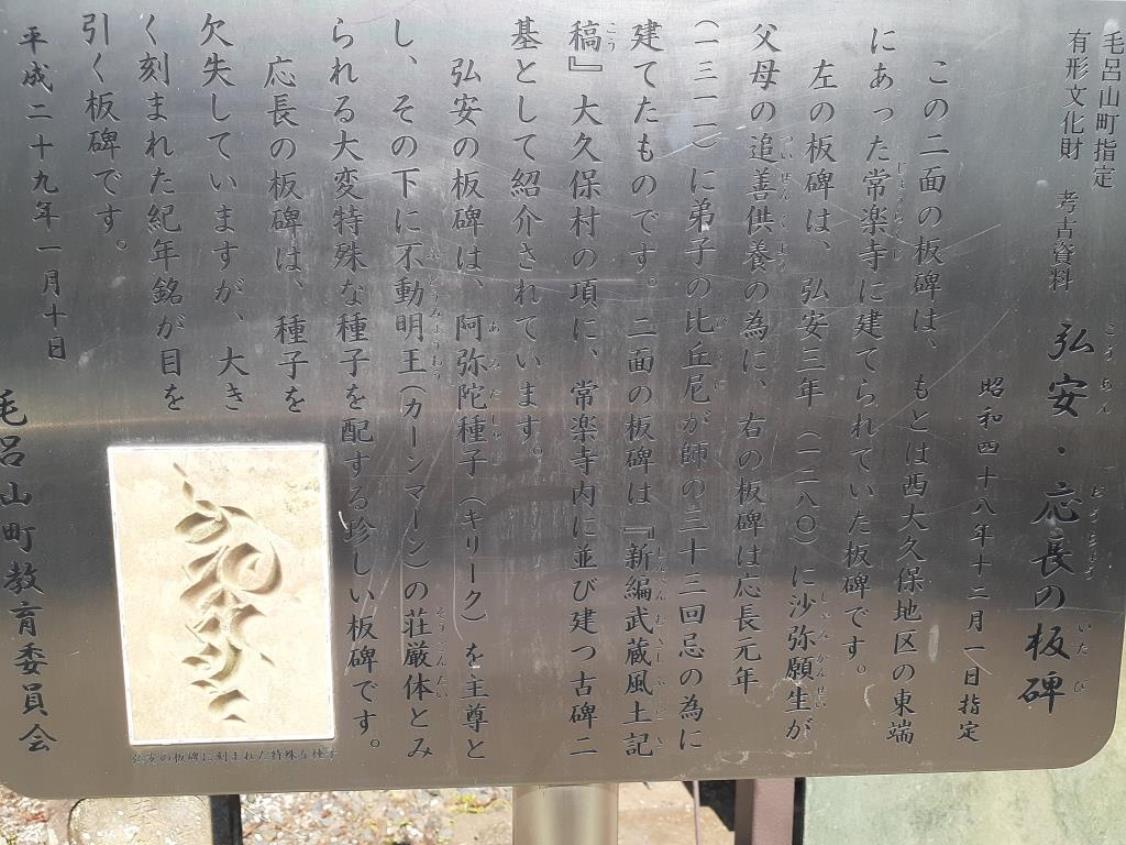 毛呂山町指定
有形文化財　考古資料
弘安・応長の板碑
昭和四十八年十二月一日指定
この二面の板碑は、もとは西大久保地区の東端
にあった常楽寺に建てられていた板碑です。
左の板碑は、弘安三年（一二八〇）に沙弥願生が
父母の追善供養の為に、右の板碑は応長元年
（一三一一）に弟子の比丘尼が師の三十三回忌の為に
建てたものです。二面の板碑は『新編武蔵風土記
稿』大久保村の項に、常楽寺内に並び建つ古碑二
基として紹介されています。
弘安の板碑は、阿弥陀種子（キリーク）を主尊と
し、その下に不動明王（カーンマーン）の荘厳体とみ
られる大変特殊な種子を配する珍しい板碑です。
応長の板碑は、種子を
欠失していますが、大き
く刻まれた紀年銘が目を
引く板碑です。
平成二十九年一月十日
毛呂山町教育委員会
弘安の板碑に刻まれた特殊な種子